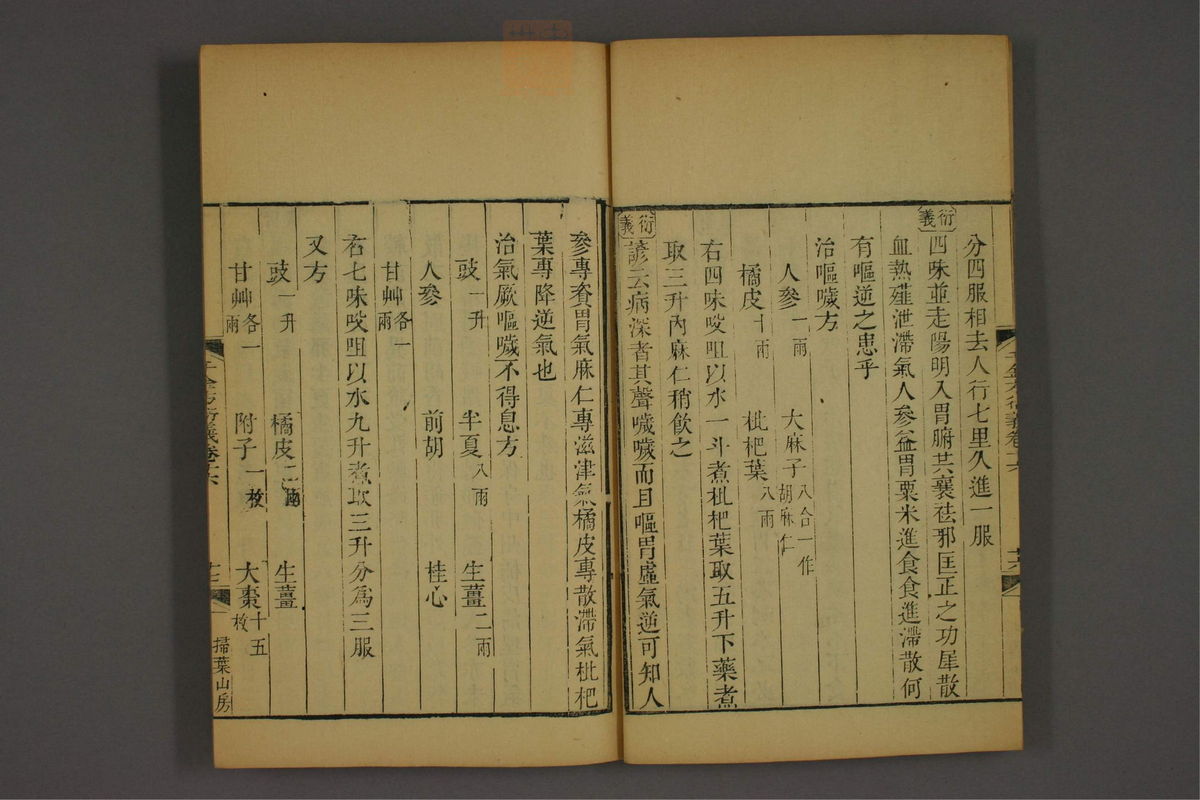 分四服相去人行七里久進一服
衍義
四味並走陽明入胃腑共襄祛邪匡正之功犀散
血熱薤泄滯氣人參益胃粟米進食食進滯散何
有嘔逆之患乎
治嘔噦方
人參一兩 大麻子八合一作胡麻仁
橘皮十兩 枇杷葉八兩
右四味㕮咀以水一斗煮枇杷葉取五升下藥煮
取三升內麻仁稍飲之
衍義
諺云病深者其聲噦噦而且嘔胃虛氣逆可知人
參專資胃氣麻仁專滋津氣橘皮專散滯氣枇杷
葉專降逆氣也
治氣厥嘔噦不得息方
豉一升 半夏八兩 生薑二兩
人參 前胡 桂心
甘艸各一兩
右七味㕮咀以水九升煮取三升分爲三服
又方
豉一升 橘皮二兩 生薑
甘艸各一兩 附子一枚 大棗十五枚
千金方衍義卷十六
掃葉山房